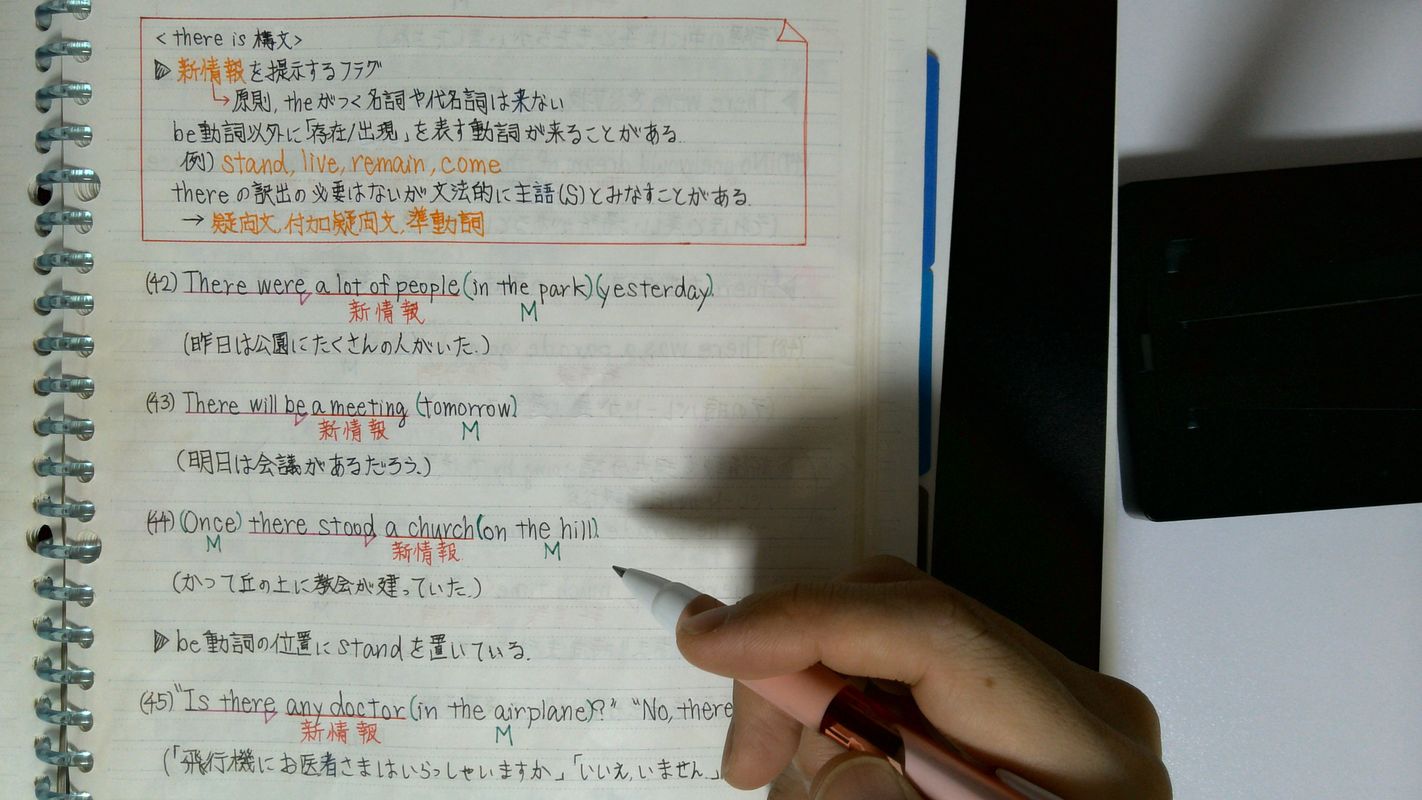 <there is 構文>
▷ 新情報を提示するフラグ
↳原則, theがつく名詞や代名詞は来ない
be動詞以外に「存在/出現」を表す動詞が来ることがある.
例) stand, live, remain, come
thereの訳出の必要はないが文法的に主語(S)とみなすことがある.
→ 疑問文, 付加疑問文, 準動詞
(42) There were a lot of people (in the park)(yesterday).
新情報 M
(昨日は公園にたくさんの人がいた.)
(43) There will be a meeting (tomorrow).
新情報 M
(明日は会議があるだろう.)
(44) (Once) there stood a church (on the hill).
M 新情報 M
(かつて丘の上に教会が建っていた.)
▷ be動詞の位置にstandを置いている.
(45) "Is there any doctor (in the airplane)?" "No, there
新情報 M
(「飛行機にお医者さまはいらっしゃいますか」「いいえ, いません.」